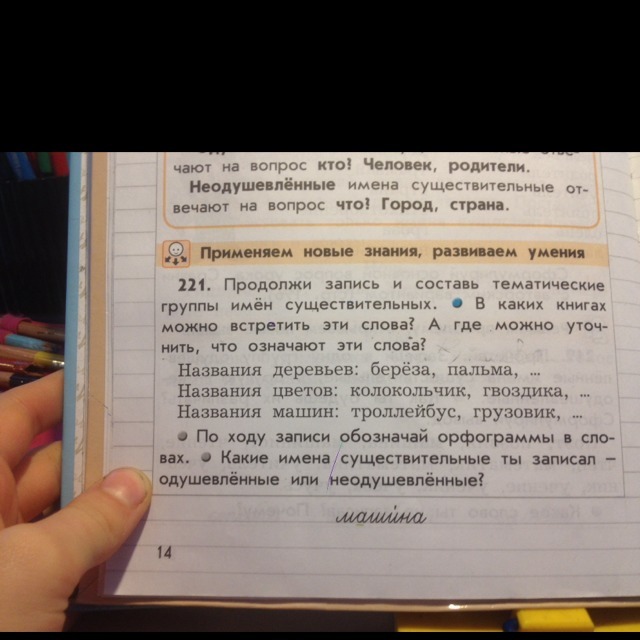 чают на вопрос кто? Человек, родители.
Неодушевлённые имена существительные от-
вечают на вопрос что? Город, страна.
Применяем новые знания, развиваем умения
221. Продолжи запись и составь тематические
группы имён существительных. • В каких книгах
можно встретить эти слова? А где можно уточ-
нить, что означают эти слова?
Названия деревьев: берёза, пальма, ...
Названия цветов: колокольчик, гвоздика, ...
Названия машин: троллейбус, грузовик, ...
• По ходу записи обозначай орфограммы в сло-
вах. • Какие имена существительные ты записал –
одушевлённые или неодушевлённые?
маши́на
14